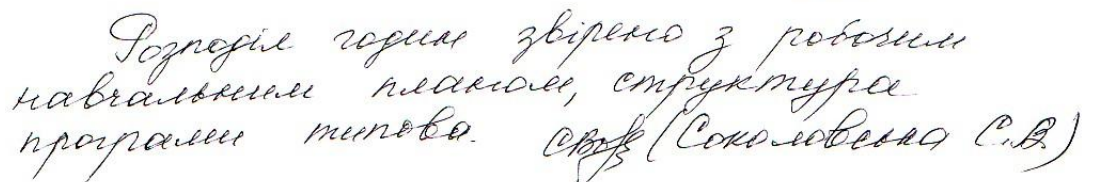 Розподіл годин звірено з робочим
навчальним планом, структура
програми типова. (Соколовська С.В.)